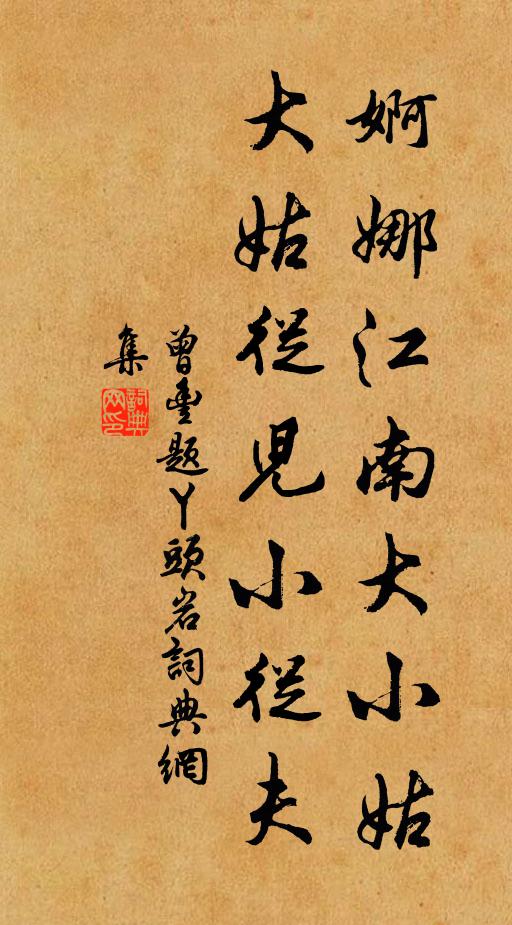 婀娜江南大小姑
大姑從兒小從夫
曾豊題丫頭岩詞典網
集
詞典
网印